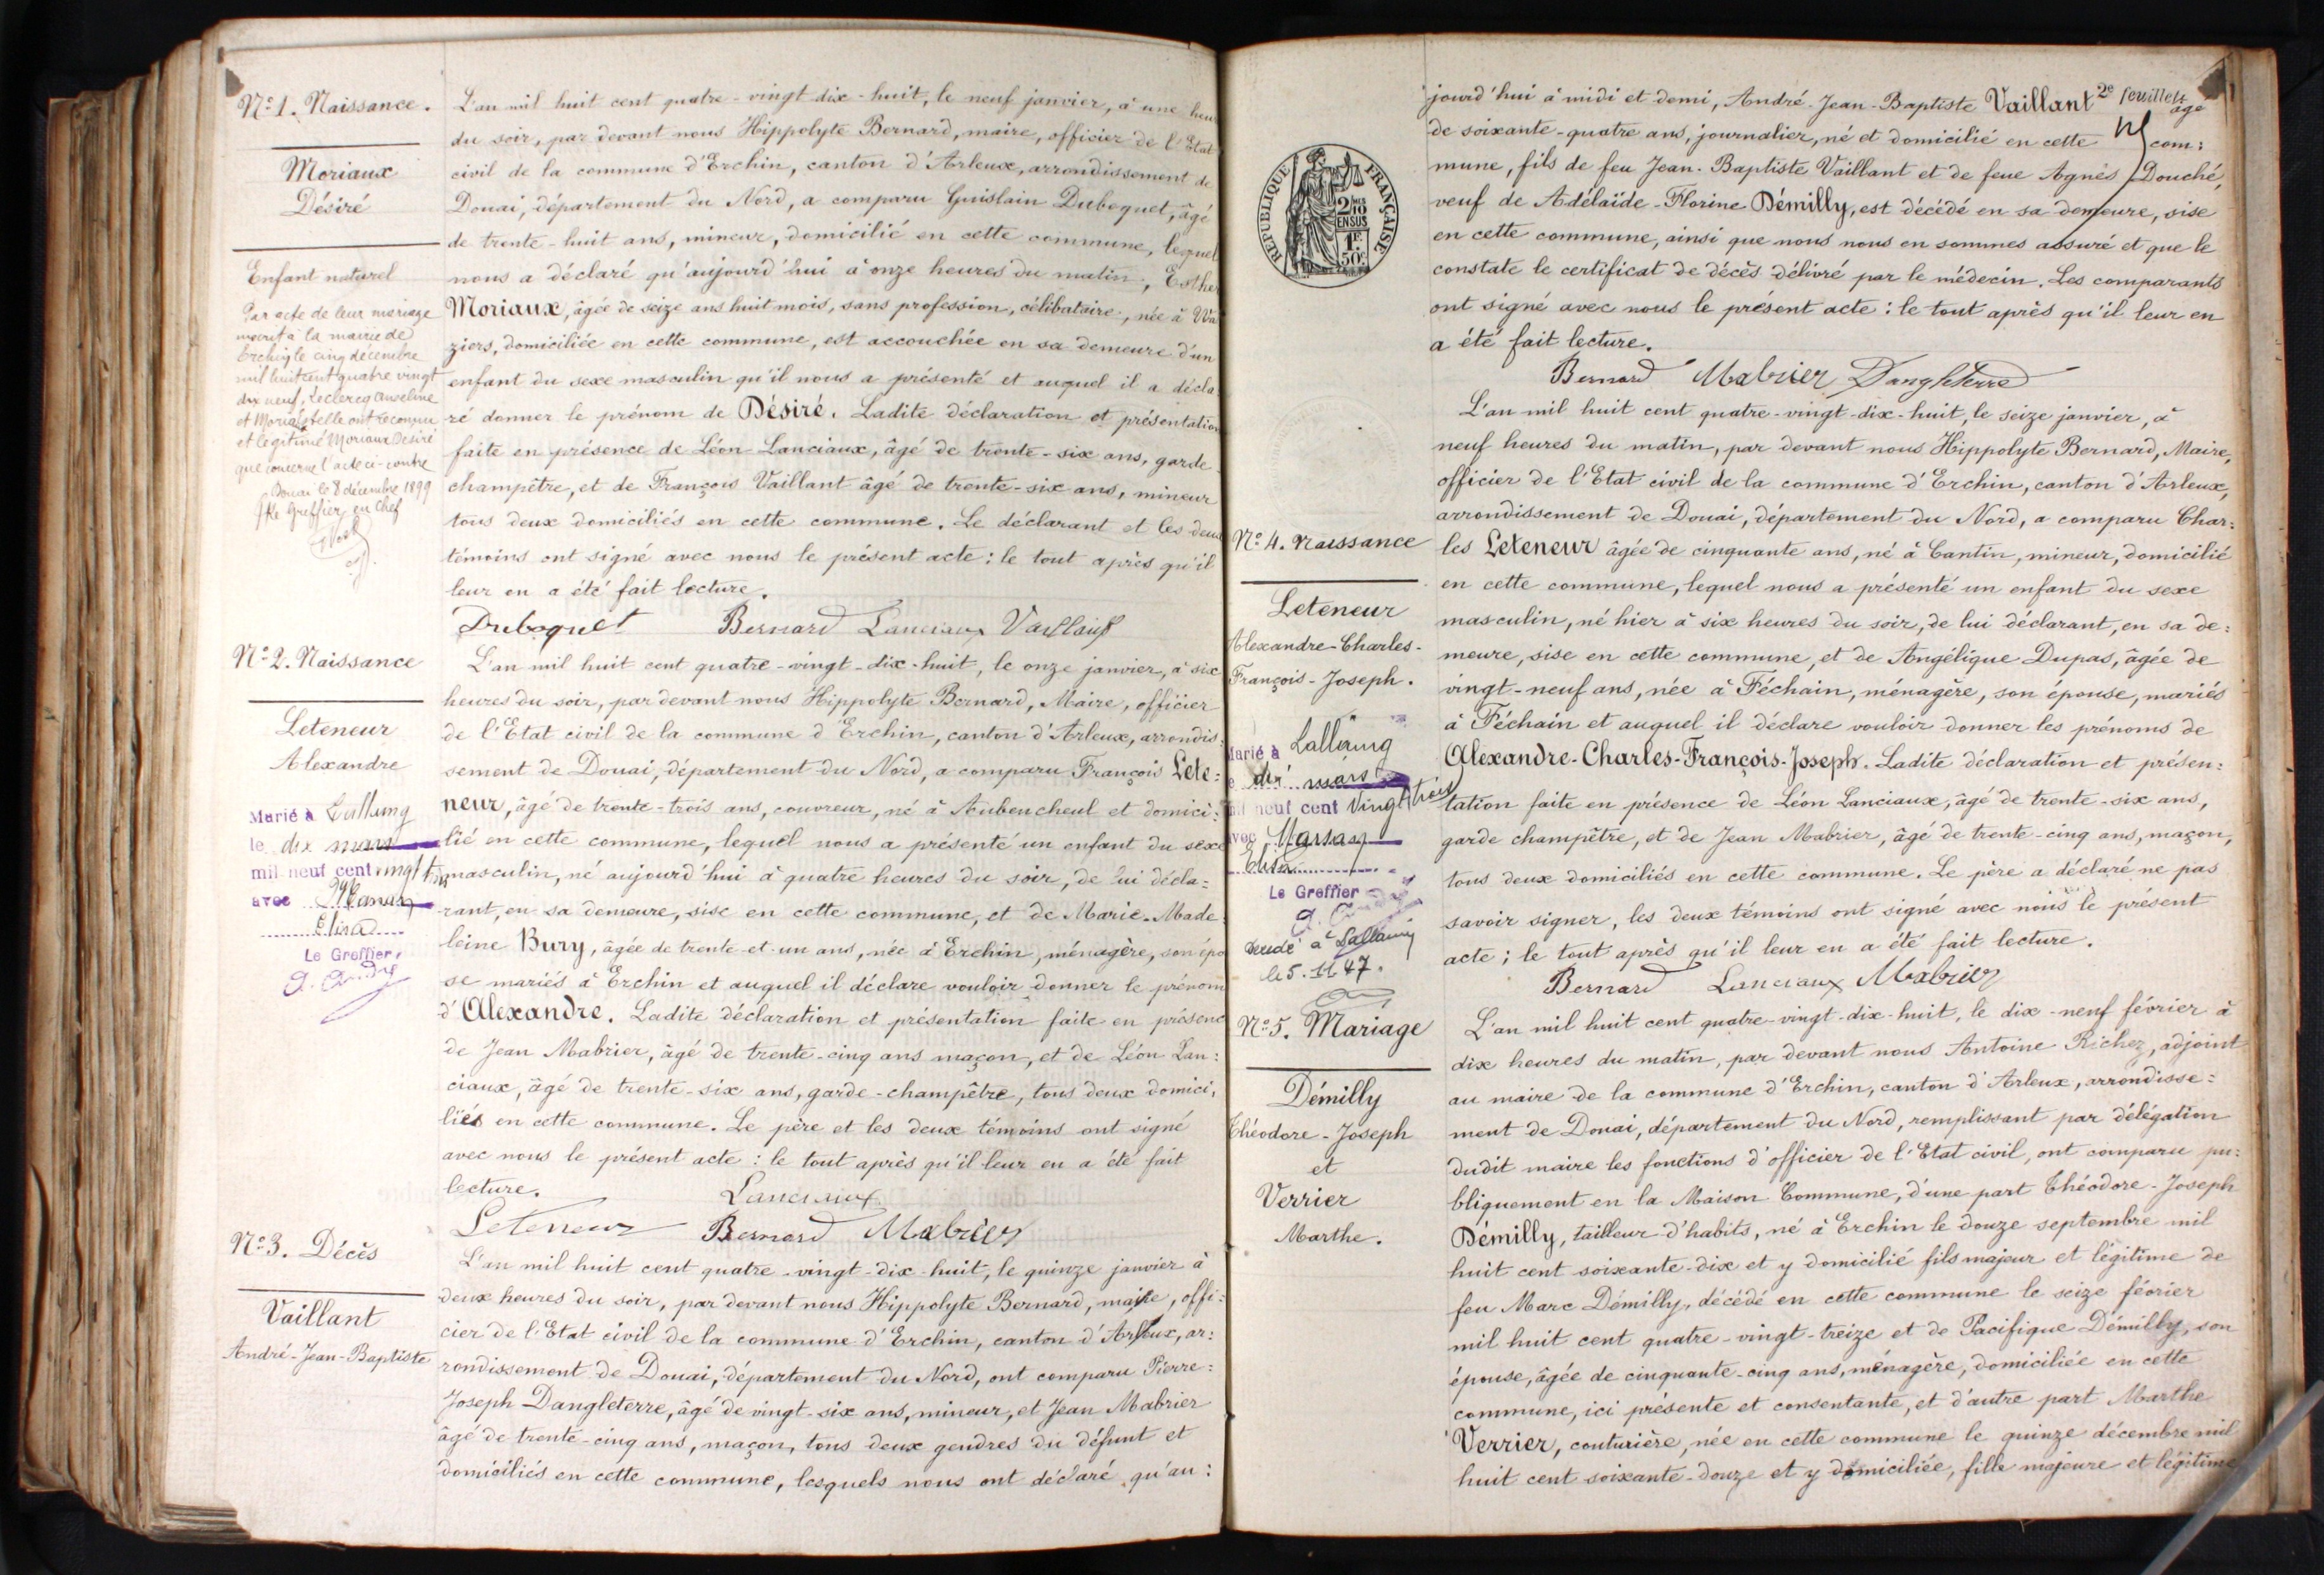 N° 1. Naissance.
Moriaux
Désiré
Enfant naturel
Par acte de leur mariage
inscrit à la mairie de
Erchin le cinq décembre
mil huit cent quatre vingt
dix neuf, Leclercq Anseline
et Moriaux Estelle ont reconnu
et légitimé Moriaux Désiré
que concerne l'acte ci-contre
Douai le 8 décembre 1899
Le Greffier en Chef
L'an mil huit cent quatre-vingt dix-huit, le neuf janvier, à une heu
du soir, par devant nous Hippolyte Bernard, maire, officier de l'Etat
civil de la commune d'Erchin, canton d'Arleux, arrondissement de
Douai, département du Nord, a comparu Guislain Duboquet, âgé
de trente-huit ans, mineur, domicilié en cette commune, lequel
nous a déclaré qu'aujourd'hui à onze heures du matin, Esther
Moriaux, âgée de seize ans huit mois, sans profession, célibataire, née à Wa
ziers, domiciliée en cette commune, est accouchée en sa demeure d'un
enfant du sexe masculin qu'il nous a présenté et auquel il a décla
ré donner le prénom de Désiré. Ladite déclaration et présentation
faite en présence de Léon Lanciaux, âgé de trente-six ans, garde-
champêtre, et de François Vaillant âgé de trente-six ans, mineur
tous deux domiciliés en cette commune. Le déclarant et les deux
témoins ont signé avec nous le présent acte : le tout après qu'il
leur en a été fait lecture.
Duboquet Bernard Lanciaux Vaillant
N° 2. Naissance
Leteneur
Alexandre
Marié à Lallaing
le dix mars
mil neuf cent vingt trois
avec
Elisa
Le Greffier,
L'an mil huit cent quatre-vingt-dix-huit, le onze janvier, à six
heures du soir, par devant nous Hippolyte Bernard, Maire, officier
de l'Etat civil de la commune d'Erchin, canton d'Arleux, arrondis:
sement de Douai, département du Nord, a comparu François Lete=
neur, âgé de trente-trois ans, couvreur, né à Aubencheul et domici:
lié en cette commune, lequel nous a présenté un enfant du sexe
masculin, né aujourd'hui à quatre heures du soir, de lui décla=
rant, en sa demeure, sise en cette commune, et de Marie-Made
leine Bury, âgée de trente-et-un ans, née à Erchin, ménagère, son épo
se mariés à Erchin et auquel il déclare vouloir donner le prénom
d'Alexandre. Ladite déclaration et présentation faite en présenc
de Jean Mabrier, âgé de trente-cinq ans maçon, et de Léon Lan:
ciaux, âgé de trente-six ans, garde-champêtre, tous deux domici,
liés en cette commune. Le père et les deux témoins ont signé
avec nous le présent acte : le tout après qu'il leur en a été fait
lecture. Lanciaux
Leteneur Bernard Mabrier
N° 3. Décès
Vaillant
André-Jean-Baptiste
L'an mil huit cent quatre-vingt-dix-huit, le quinze janvier à
deux heures du soir, par devant nous Hippolyte Bernard, maire, offi:
cier de l'Etat civil de la commune d'Erchin, canton d'Arleux, ar:
rondissement de Douai, département du Nord, ont comparu Pierre=
Joseph Dangleterre, âgé de vingt-six ans, mineur, et Jean Mabrier
âgé de trente-cinq ans, maçon, tous deux gendres du défunt et
domiciliés en cette commune, lesquels nous ont déclaré qu'au:
2e feuillet
jourd'hui à midi et demi, André-Jean-Baptiste Vaillant âgé
de soixante-quatre ans, journalier, né et domicilié en cette com:
mune, fils de feu Jean-Baptiste Vaillant et de feue Agnès Douché,
veuf de Adélaïde-Florine Démilly, est décédé en sa demeure, sise
en cette commune, ainsi que nous nous en sommes assuré et que le
constate le certificat de décès délivré par le médecin. Les comparants
ont signé avec nous le présent acte : le tout après qu'il leur en
a été fait lecture.
Bernard Mabrier Dangleterre
REPUBLIQUE FRANÇAISE
2/10
EN SUS
1F
50c
N° 4. Naissance
Leteneur
Alexandre-Charles-
François-Joseph.
Marié à Lallaing
le dix mars
mil neuf cent vingt trois
avec
Elisa
Le Greffier
décédé à Lallaing
le 5.11.47.
L'an mil huit cent quatre-vingt-dix-huit, le seize janvier, à
neuf heures du matin, par devant nous Hippolyte Bernard, Maire,
officier de l'Etat civil de la commune d'Erchin, canton d'Arleux,
arrondissement de Douai, département du Nord, a comparu Char=
les Leteneur âgée de cinquante ans, né à Cantin, mineur, domicilié
en cette commune, lequel nous a présenté un enfant du sexe
masculin, né hier à six heures du soir, de lui déclarant, en sa de:
meure, sise en cette commune, et de Angélique Dupas, âgée de
vingt-neuf ans, née à Féchain, ménagère, son épouse, mariés
à Féchain et auquel il déclare vouloir donner les prénoms de
Alexandre-Charles-François-Joseph. Ladite déclaration et présen:
tation faite en présence de Léon Lanciaux, âgé de trente-six ans,
garde champêtre, et de Jean Mabrier, âgé de trente-cinq ans, maçon,
tous deux domiciliés en cette commune. Le père a déclaré ne pas
savoir signer, les deux témoins ont signé avec nous le présent
acte ; le tout après qu'il leur en a été fait lecture.
Bernard Lanciaux Mabrier
N° 5. Mariage
Démilly
Théodore-Joseph
et
Verrier
Marthe.
L'an mil huit cent quatre-vingt-dix-huit, le dix-neuf février à
dix heures du matin, par devant nous Antoine Richez, adjoint
au maire de la commune d'Erchin, canton d'Arleux, arrondisse=
ment de Douai, département du Nord, remplissant par délégation
dudit maire les fonctions d'officier de l'Etat civil, ont comparu pu=
bliquement en la Maison Commune, d'une part Théodore-Joseph
Démilly, tailleur d'habits, né à Erchin le douze septembre mil
huit cent soixante-dix et y domicilié fils majeur et légitime de
feu Marc Démilly, décédé en cette commune le seize février
mil huit cent quatre-vingt-treize et de Pacifique Démilly, son
épouse, âgée de cinquante-cinq ans, ménagère, domiciliée en cette
commune, ici présente et consentante, et d'autre part Marthe
Verrier, couturière, née en cette commune le quinze décembre mil
huit cent soixante-douze et y domiciliée, fille majeure et légitime